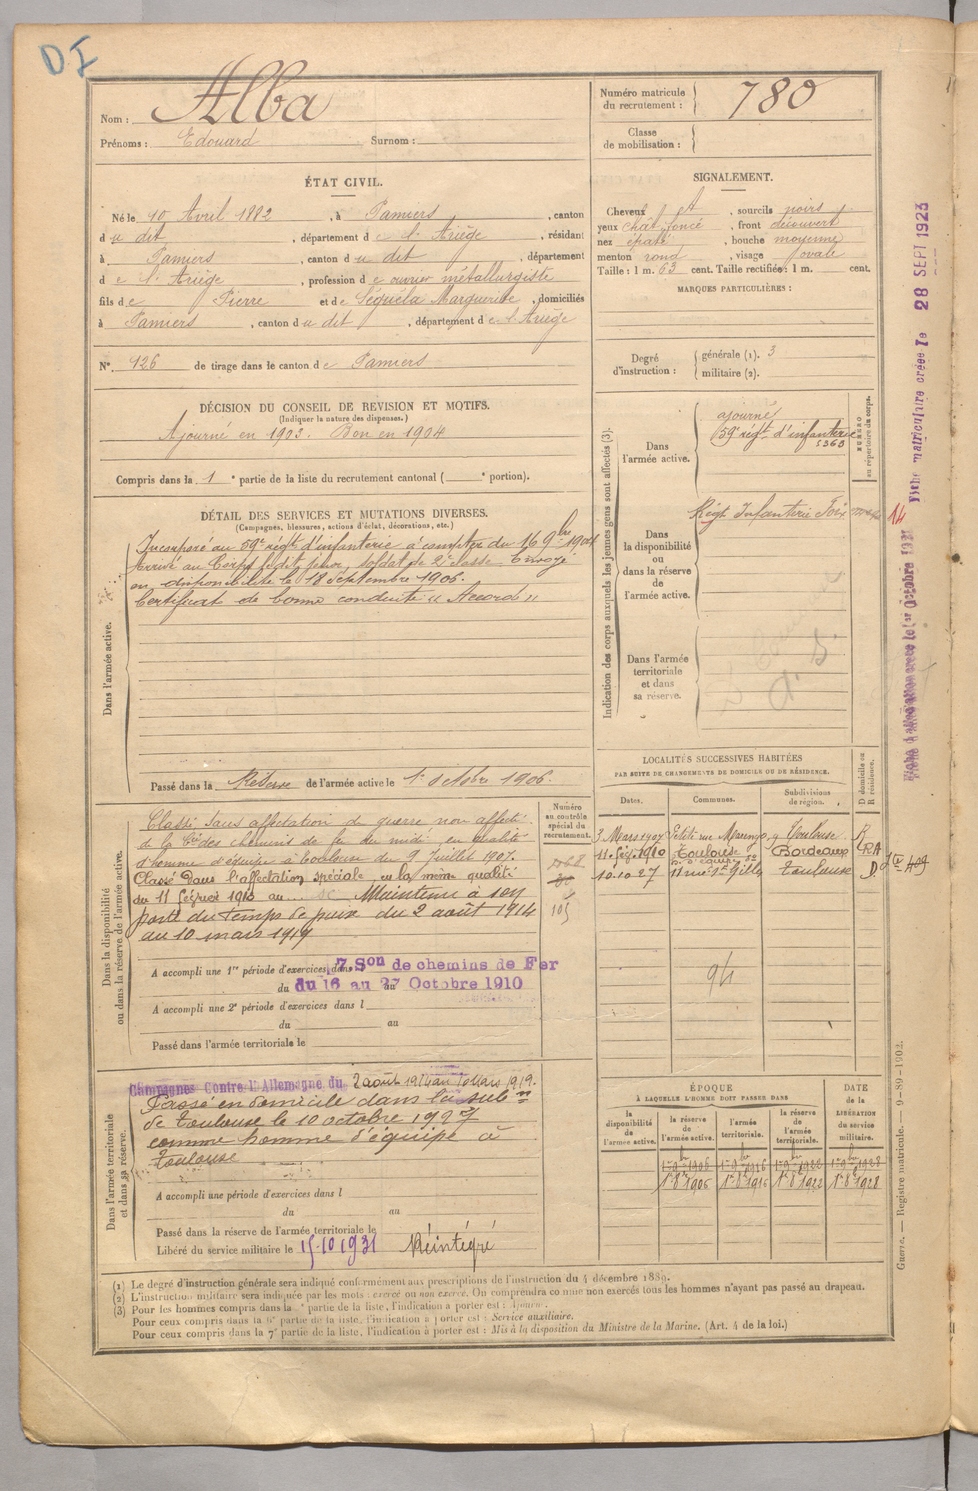 DI
Nom : Alba
Prénoms : Edouard Surnom :
Numéro matricule du recrutement : 780
Classe de mobilisation :
ÉTAT CIVIL.
Né le 10 Avril 1882, à Pamiers, canton
du dit, département de l'Ariège, résidant
à Pamiers, canton du dit, département
de l'Ariège, profession de ouvrier métallurgiste
fils de Pierre et de Séguéla Marguerite, domiciliés
à Pamiers, canton du dit, département de l'Ariège
N° 126 de tirage dans le canton de Pamiers
SIGNALEMENT.
Cheveux et, sourcils noirs
yeux chât. foncé, front découvert
nez épaté, bouche moyenne
menton rond, visage ovale
Taille : 1 m. 63 cent. Taille rectifiée : 1 m. cent.
MARQUES PARTICULIÈRES :
Degré d'instruction : générale (1). 3
militaire (2).
DÉCISION DU CONSEIL DE REVISION ET MOTIFS.
(Indiquer la nature des dispenses.)
Ajourné en 1903. Bon en 1904
Compris dans la 1e partie de la liste du recrutement cantonal ( e portion).
DÉTAIL DES SERVICES ET MUTATIONS DIVERSES.
(Campagnes, blessures, actions d'éclat, décorations, etc.)
Dans l'armée active.
Incorporé au 59e régt d'infanterie à compter du 16 9bre 1904
Arrivé au Corps le dit jour, soldat de 2e classe. Envoyé
en disponibilité le 18 Septembre 1906.
Certificat de bonne conduite "Accordé"
Passé dans la Réserve de l'armée active le 1er octobre 1906.
Indication des corps auxquels les jeunes gens sont affectés (3).
NUMÉRO au répertoire du corps.
Dans l'armée active.
ajourné
59e régt d'infanterie
5363
Dans la disponibilité ou dans la réserve de l'armée active.
Régt Infanterie Foix
Dans l'armée territoriale et dans sa réserve.
14
Fiche matriculaire créée le 28 SEPT 1923
LOCALITÉS SUCCESSIVES HABITÉES
PAR SUITE DE CHANGEMENTS DE DOMICILE OU DE RÉSIDENCE.
Dates. Communes. Subdivisions de région. D domicile ou R résidence.
3 Mars 1907 Petite rue Marengo, 9 Toulouse. R
11 fév. 1910 Toulouse Bordeaux RA
10.10.27 Toulouse D
94
Dans la disponibilité ou dans la réserve de l'armée active.
Numéro au contrôle spécial du recrutement.
105
Classé sans affectation de guerre non affecté
de la Cie des chemins de fer du midi en qualité
d'homme d'équipe à Toulouse du 9 Juillet 1907.
Classé dans l'affectation spéciale, en la même qualité
du 11 février 1913 au ... Maintenu à son
poste du temps de paix du 2 août 1914
au 10 mars 1919
A accompli une 1re période d'exercices dans 7 Son de chemins de Fer
du 16 au 27 Octobre 1910
A accompli une 2e période d'exercices dans l
du au
Passé dans l'armée territoriale le
Dans l'armée territoriale et dans sa réserve.
Campagnes Contre l'Allemagne du 2 août 1914 au 10 Mars 1919.
Passé en domicile dans la subon
de Toulouse le 10 octobre 1927
comme homme d'équipe à
Toulouse
A accompli une période d'exercices dans l
du au
Passé dans la réserve de l'armée territoriale le
Libéré du service militaire le 15-10 1931 Réintégré
ÉPOQUE
À LAQUELLE L'HOMME DOIT PASSER DANS
DATE de la LIBÉRATION du service militaire.
la disponibilité de l'armée active. la réserve de l'armée active. l'armée territoriale. la réserve de l'armée territoriale.
1er 9bre 1906 1er 9bre 1916 1er 9bre 1922 1er 9bre 1928
1er 8bre 1906 1er 8bre 1916 1er 8bre 1922 1er 8bre 1928
(1) Le degré d'instruction générale sera indiqué conformément aux prescriptions de l'instruction du 4 décembre 1889.
(2) L'instruction militaire sera indiquée par les mots : exercé ou non exercé. On comprendra comme non exercés tous les hommes n'ayant pas passé au drapeau.
(3) Pour les hommes compris dans la partie de la liste, l'indication à porter est : Ajourné.
Pour ceux compris dans la 6e partie de la liste, l'indication à porter est : Service auxiliaire.
Pour ceux compris dans la 7e partie de la liste, l'indication à porter est : Mis à la disposition du Ministre de la Marine. (Art. 4 de la loi.)
Guerre. — Registre matricule. — 9-89-1902.